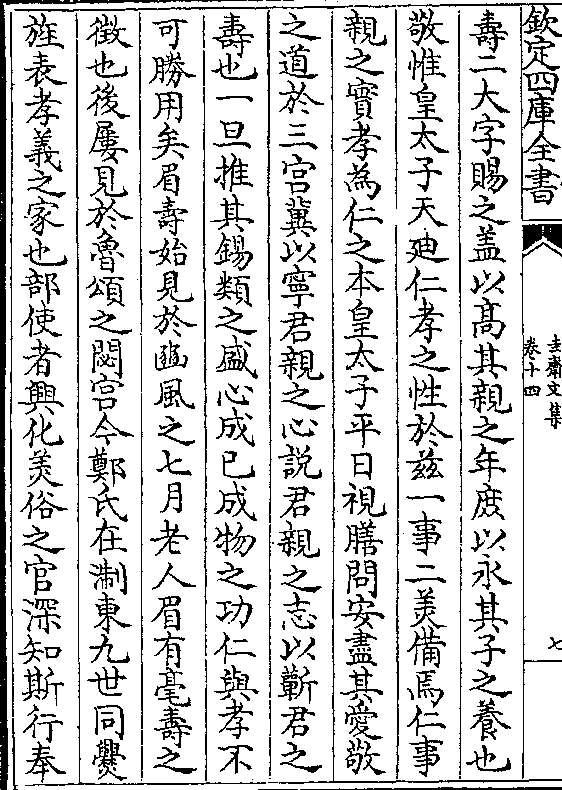 欽定四庫全書
圭齋文集
卷十四
七
壽二大字賜之盖以髙其親之年庻以永其子之養也
敬惟皇太子天廸仁孝之性於兹一事二美備焉仁事
親之實孝為仁之本皇太子平日視膳問安盡其愛敬
之道於三宫冀以寧君親之心説君親之志以蘄君之
壽也一旦推其錫類之盛心成已成物之功仁與孝不
可勝用矣眉壽始見於豳風之七月老人眉有毫壽之
徴也後屢見於魯頌之閟宫今鄭氏在淛東九世同爨
旌表孝義之家也部使者興化美俗之官深知斯行奉